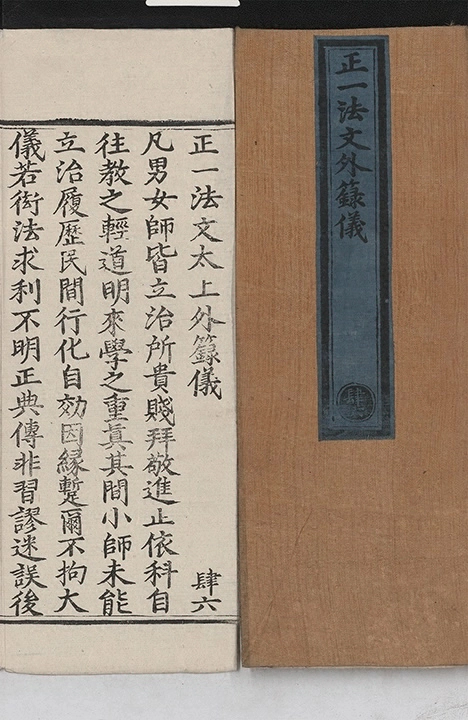 正一法文外籙儀
肆
正一法文太上外籙儀
肆六
凡男女師皆立治所貴賤拜敬進止依科自
往教之輕道明來學之重眞其間小師未能
立治履歷民間行化自効因緣蹔爾不拘大
儀若衒法求利不明正典傳非習謬迷誤後